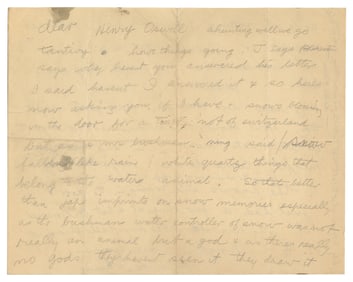 dear Henry Oswell ahunting will we go
tantivy. how things going. J says
says why havent you answered her letter
I said havent I answered it & so heres
now asking you if I have. snows
in the door for a not on switzerland
but as a mrs bushman said
falls like rain white quartz things that
belong to the water animal. So that better
than jap imprints on snow memories especially
as the bushman water controller of snow was not
really an animal but a god & as theres really
no gods they havent seen it they draw it